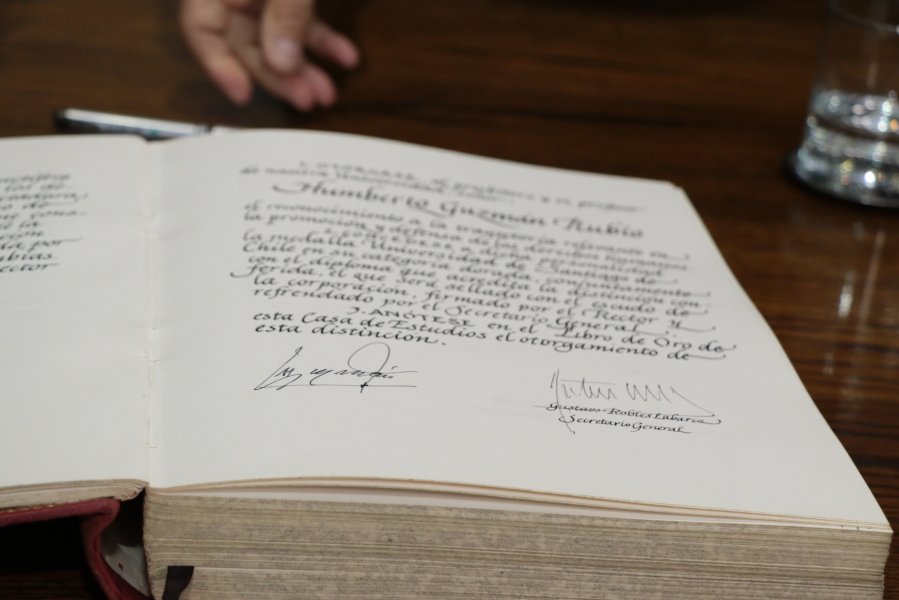 los de-
de
que cons-
la
da por
ubias
ector
1. OTÓRGASE al profesor
de nuestra Universidad
Humberto Guzmán Rubio
el reconocimiento a la trayectoria relevante en
la promoción y defensa de los derechos humanos.
2. CONCÉDESE a dicha personalidad
la medalla Universidad de Santiago de
Chile en su categoría dorada, conjuntamente
con el diploma que acredita la distinción con
ferida, el que será sellado con el escudo de
la corporación, firmado por el Rector y
refrendado por el Secretario General.
3. ANÓTESE en el Libro de Oro de
esta Casa de Estudios el otorgamiento de
esta distinción.
Gustavo Robles Labarca
Secretario General